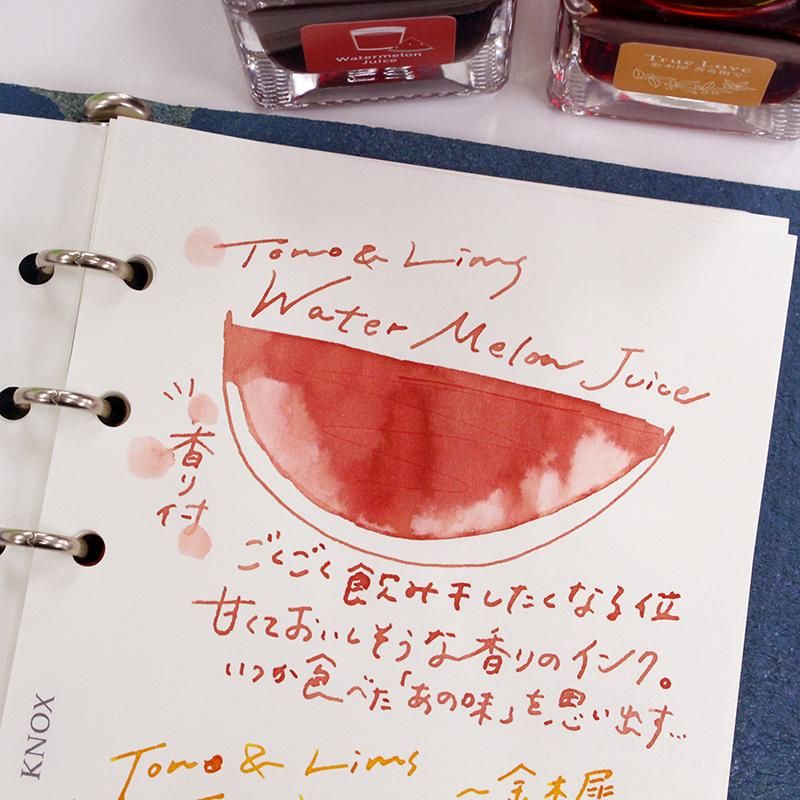 Watermelon
Juice
True Love
金木犀 香る街で
Tomo & Lims
Water Melon Juice
香り付
ごくごく飲み干したくなる位
甘くておいしそうな香りのインク。
いつか食べた「あの味」を思い出す…
KNOX
Tomo & Lims
~金木犀